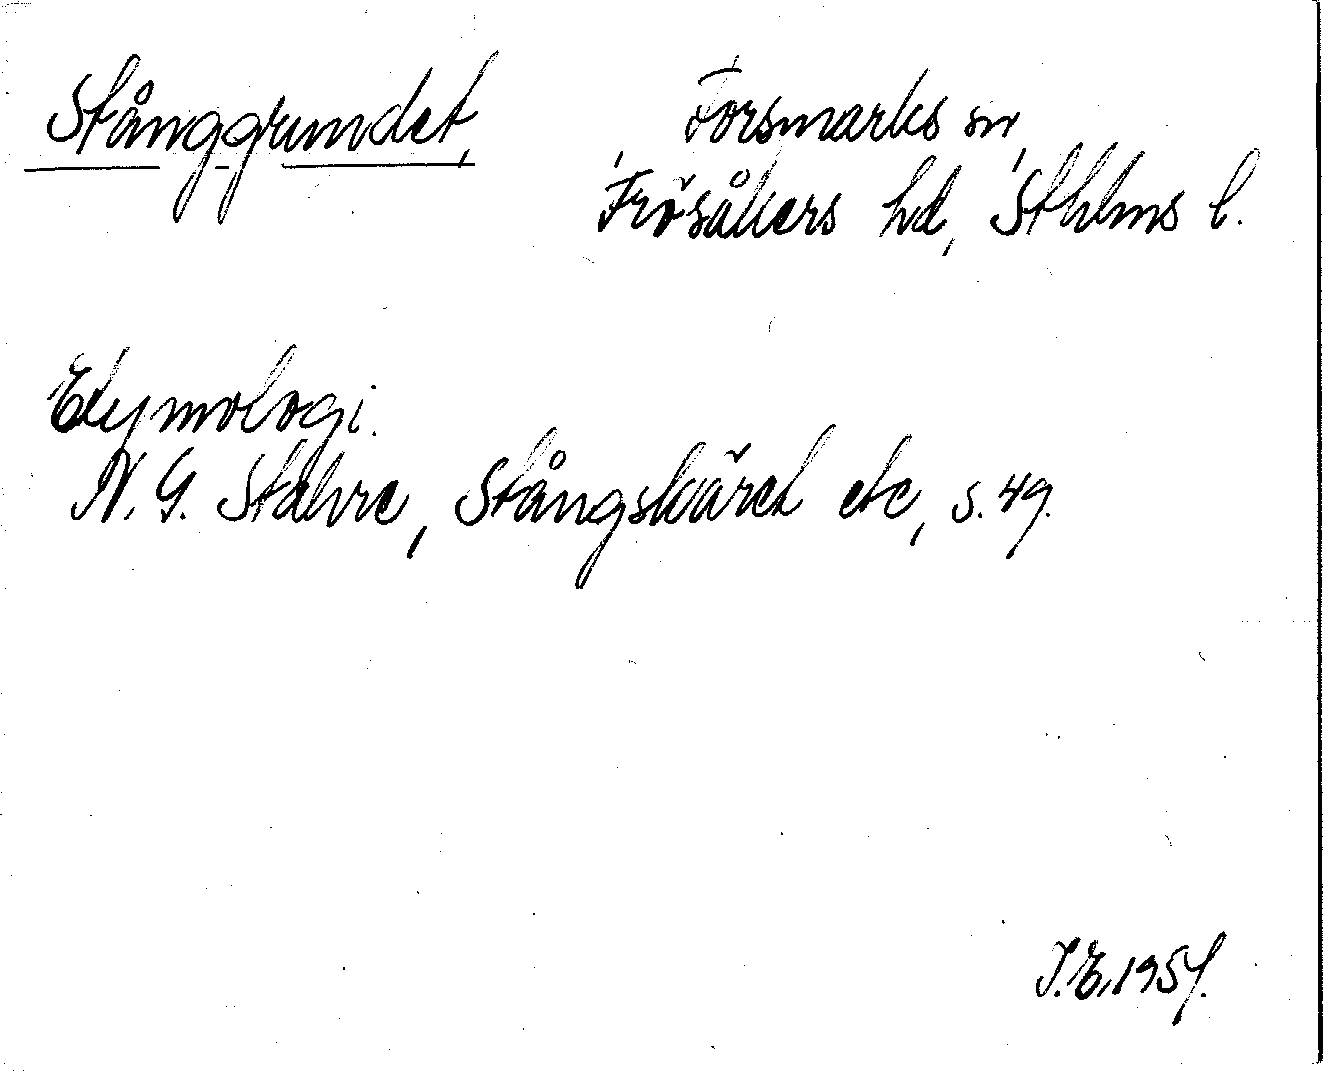 Stånggrundet, Forsmarks sn,
Frösåkers hd, Sthlms l.
Etymologi.
N. G. Stahre, Stångskäret etc, s. 49.